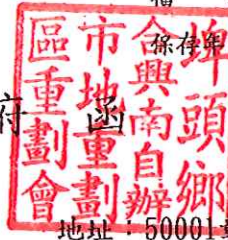 保存年
府 函
埤頭鄉
合興南自辦
市地重劃
區重劃會
地址：50001